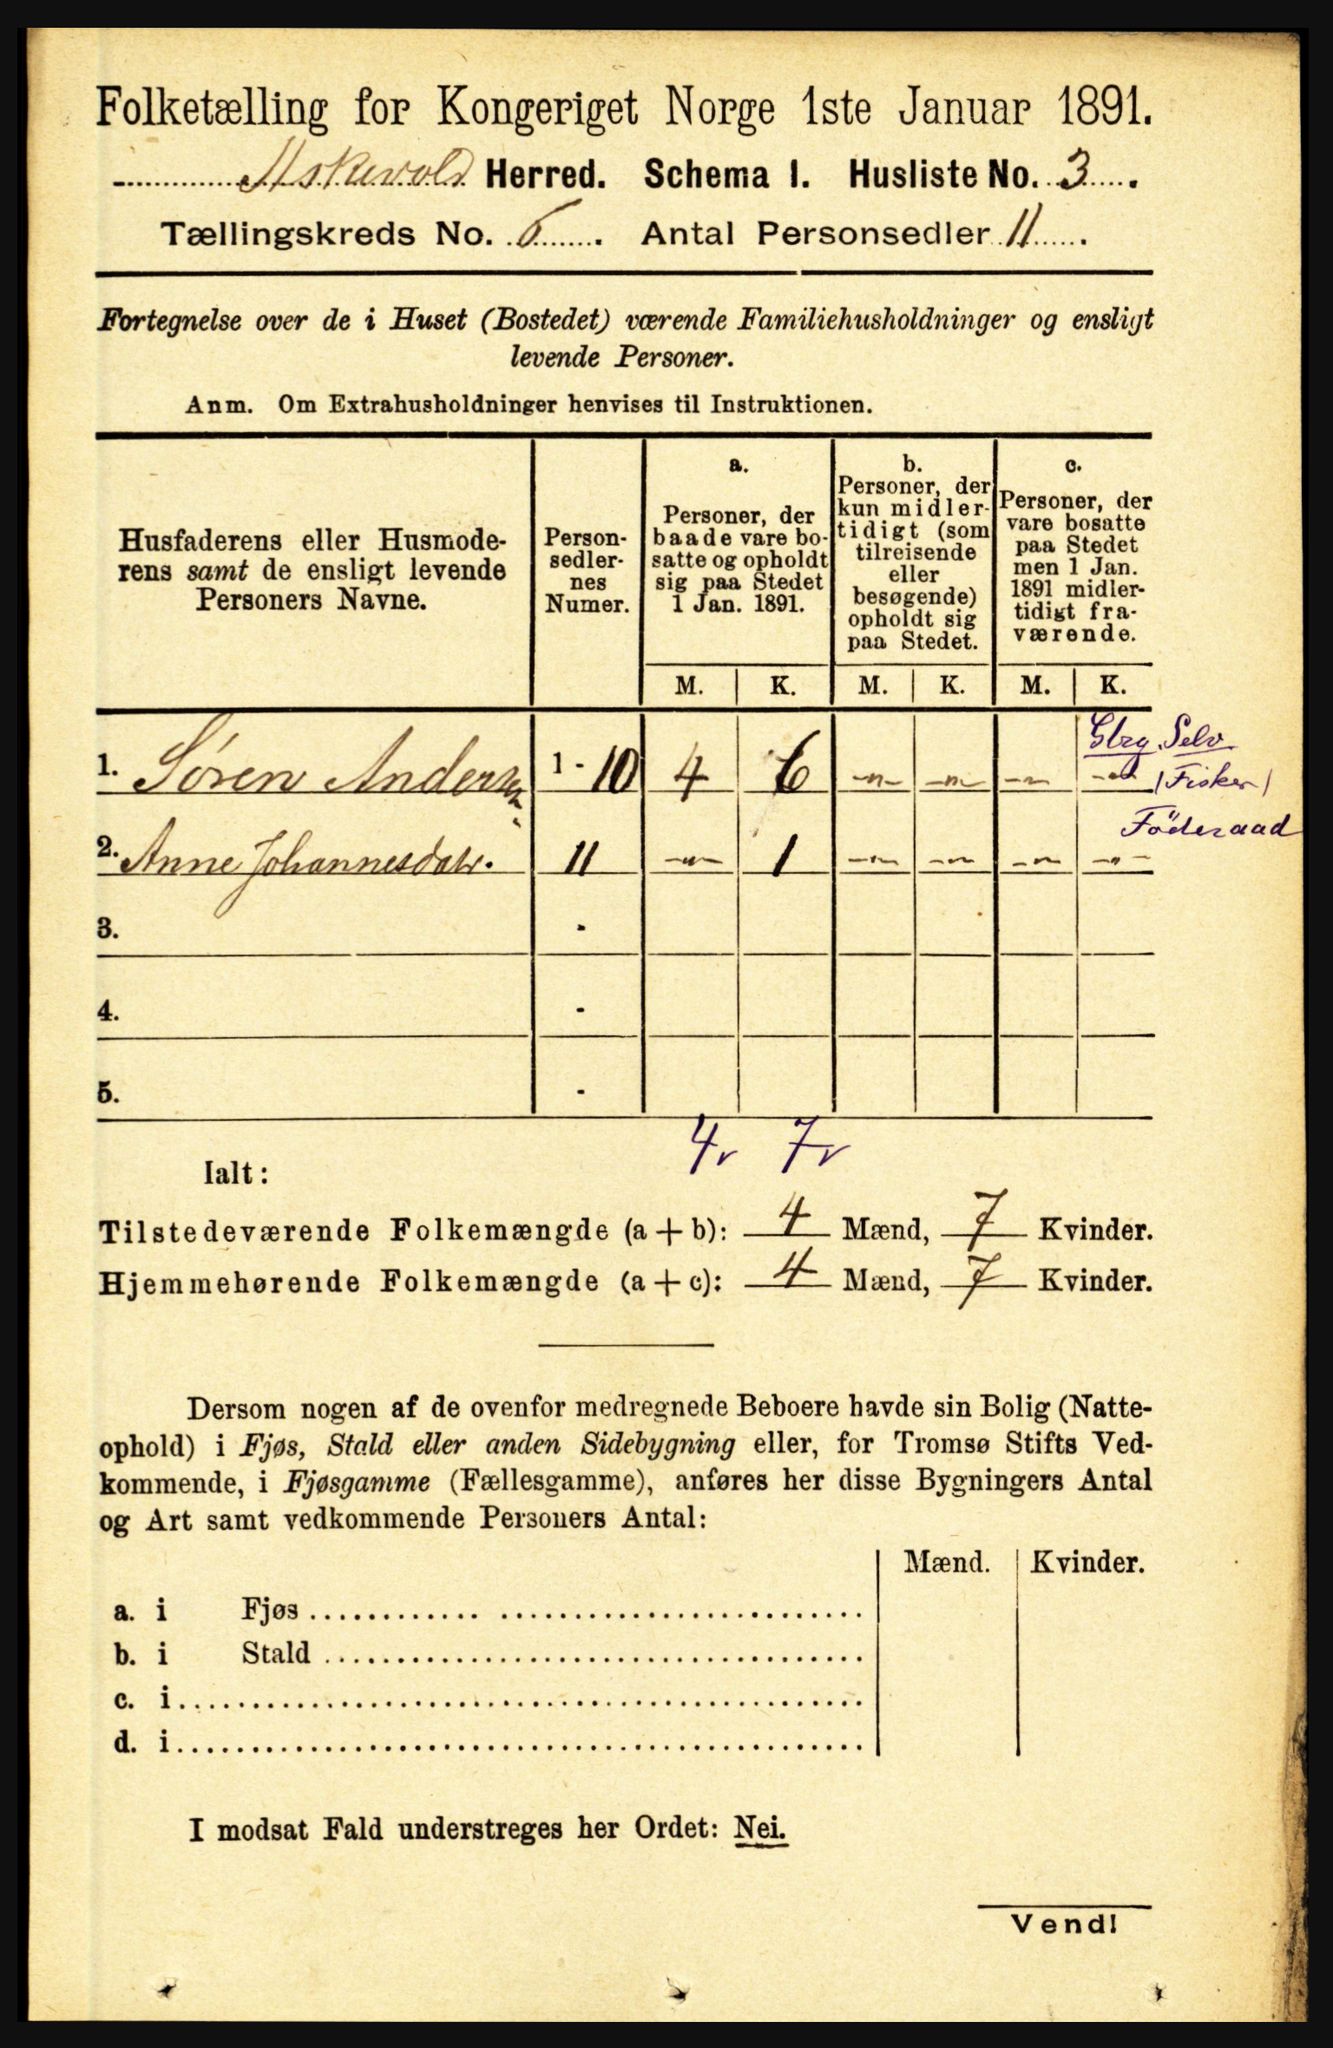 Folketælling for Kongeriget Norge 1ste Januar 1891.
Askevold Herred. Schema 1. Husliste No. 3.
Tællingskreds No. 6. Antal Personsedler 11.
Fortegnelse over de i Huset (Bostedet) værende Familiehusholdninger og ensligt
levende Personer.
Anm. Om Extrahusholdninger henvises til Instruktionen.
Husfaderens eller Husmode-
rens samt de ensligt levende
Personers Navne.
Person-
sedler-
nes
Numer.
a.
Personer, der
baade vare bo-
satte og opholdt
sig paa Stedet
1 Jan. 1891.
b.
Personer, der
kun midler-
tidigt (som
tilreisende
eller
besøgende)
opholdt sig
paa Stedet.
c.
Personer, der
vare bosatte
paa Stedet
men 1 Jan.
1891 midler-
tidigt fra-
værende.
M. K. M. K. M. K.
1. Søren Andersen 1 - 10 4 6 -"- -"- -"- -"- Gbrg. Selv
(Fisker)
Föderaad
2. Anne Johannesdatr. 11 -"- 1 -"- -"- -"- -"-
3. -
4. -
5. -
4 7
Ialt:
Tilstedeværende Folkemængde (a + b): 4 Mænd, 7 Kvinder.
Hjemmehørende Folkemængde (a + c): 4 Mænd, 7 Kvinder.
Dersom nogen af de ovenfor medregnede Beboere havde sin Bolig (Natte-
ophold) i Fjøs, Stald eller anden Sidebygning eller, for Tromsø Stifts Ved-
kommende, i Fjøsgamme (Fællesgamme), anføres her disse Bygningers Antal
og Art samt vedkommende Personers Antal:
Mænd. Kvinder.
a. i Fjøs
b. i Stald
c. i
d. i
I modsat Fald understreges her Ordet: Nei.
Vend!